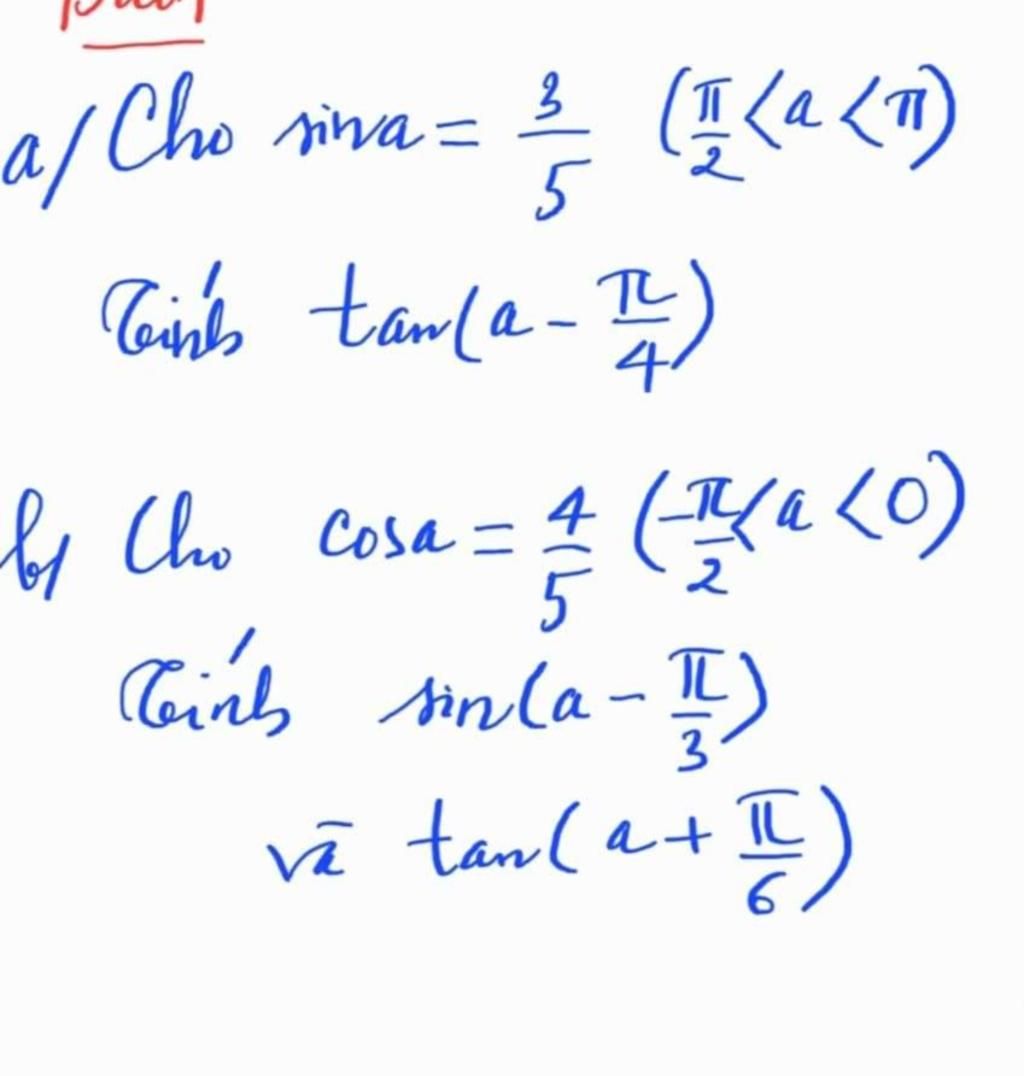 a/ Cho sina = 3/5 (π/2 < a < π)
Tính tan(a - π/4)
b/ Cho cosa = 4/5 (-π/2 < a < 0)
Tính sin(a - π/3)
và tan(a + π/6)